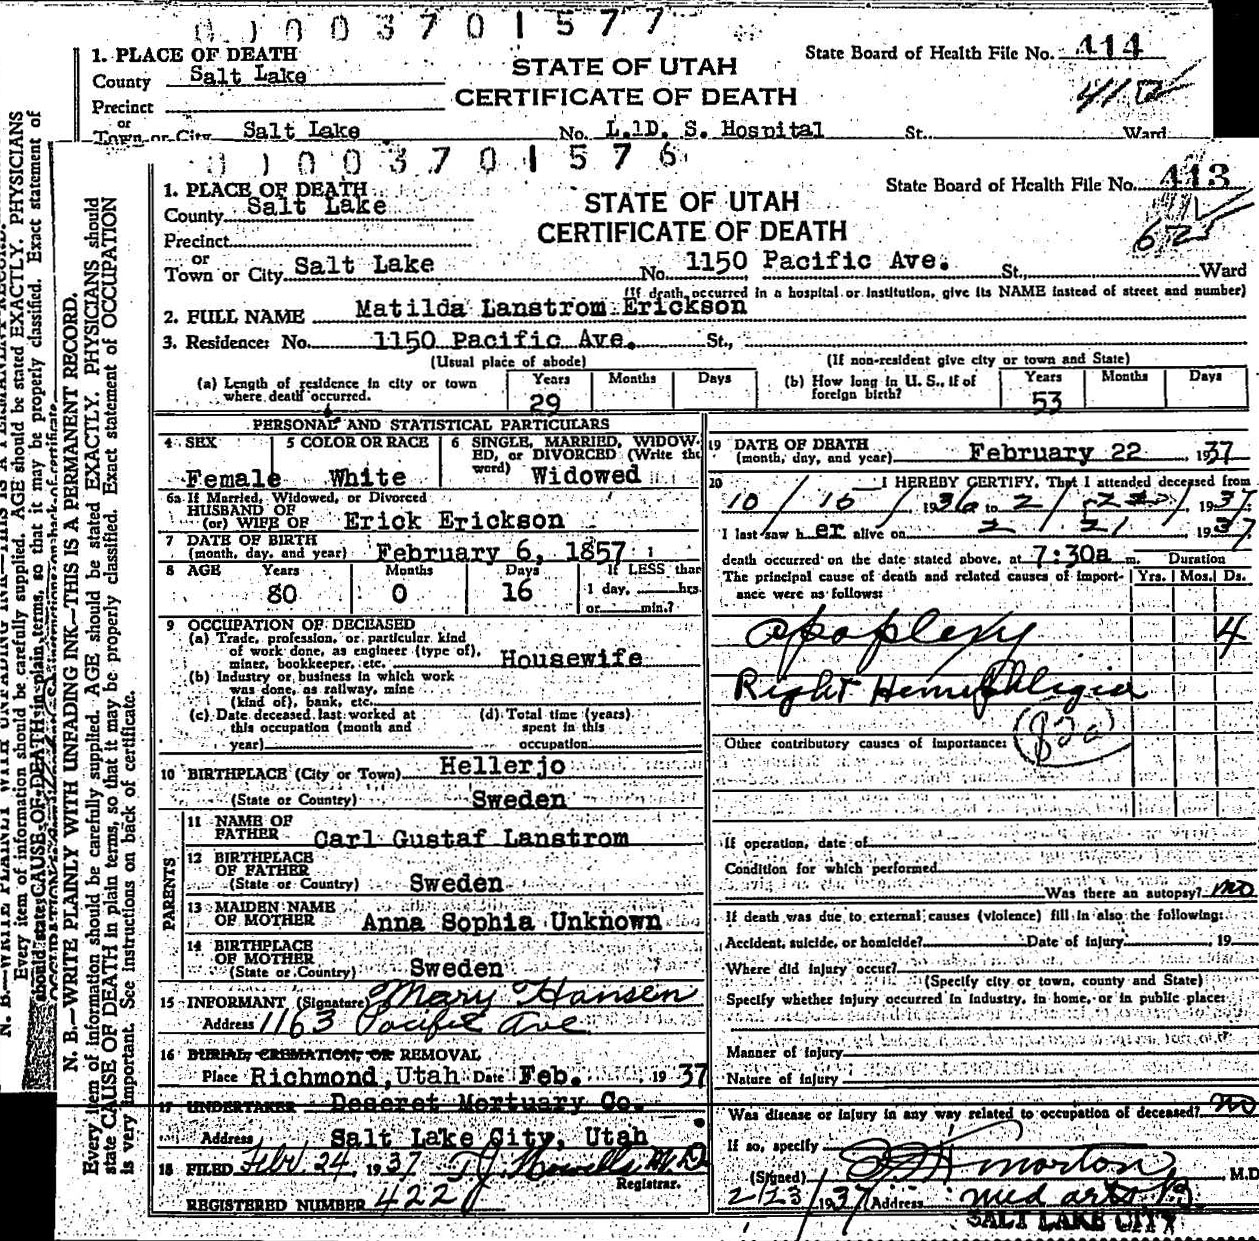 0 1 0 0 3 7 0 1 5 7 7
1. PLACE OF DEATH
County Salt Lake
Precinct
or
Town or City Salt Lake No. L.1D. S. Hospital St. Ward
STATE OF UTAH
CERTIFICATE OF DEATH
State Board of Health File No. 414
0 1 0 0 3 7 0 1 5 7 6
1. PLACE OF DEATH
County Salt Lake
Precinct
or
Town or City Salt Lake No. 1150 Pacific Ave. St., Ward
STATE OF UTAH
CERTIFICATE OF DEATH
State Board of Health File No. 413
62
(If death occurred in a hospital or institution, give its NAME instead of street and number)
2. FULL NAME Matilda Lanstrom Erickson
3. Residence: No. 1150 Pacific Ave. St.,
(Usual place of abode) (If non-resident give city or town and State)
(a) Length of residence in city or town where death occurred. Years 29 Months Days
(b) How long in U. S., if of foreign birth? Years 53 Months Days
PERSONAL AND STATISTICAL PARTICULARS
4 SEX Female
5 COLOR OR RACE White
6 SINGLE, MARRIED, WIDOWED, or DIVORCED (Write the word) Widowed
6a If Married, Widowed, or Divorced
HUSBAND OF
(or) WIFE OF Erick Erickson
7 DATE OF BIRTH
(month, day, and year) February 6, 1857
8 AGE Years 80 Months 0 Days 16 If LESS than
1 day, hrs.
or min.?
9 OCCUPATION OF DECEASED
(a) Trade, profession, or particular kind
of work done, as engineer (type of),
miner, bookkeeper, etc. Housewife
(b) Industry or business in which work
was done, as railway, mine
(kind of), bank, etc.
(c) Date deceased last worked at
this occupation (month and
year)
(d) Total time (years)
spent in this
occupation
10 BIRTHPLACE (City or Town) Hellerjo
(State or Country) Sweden
PARENTS
11 NAME OF
FATHER Carl Gustaf Lanstrom
12 BIRTHPLACE
OF FATHER
(State or Country) Sweden
13 MAIDEN NAME
OF MOTHER Anna Sophia Unknown
14 BIRTHPLACE
OF MOTHER
(State or Country) Sweden
15 INFORMANT (Signature) Mary Hansen
Address 1163 Pacific Ave
16 BURIAL, CREMATION, OR REMOVAL
Place Richmond, Utah Date Feb. 1937
17 UNDERTAKER Deseret Mortuary Co.
Address Salt Lake City, Utah
18 FILED Feb 24, 1937 T J Howells M.D.
Registrar.
REGISTERED NUMBER 422
19 DATE OF DEATH
(month, day, and year) February 22 1937
20 I HEREBY CERTIFY, That I attended deceased from
10 / 10 / 1936 to 2 / 22 / 1937
I last saw her alive on 2 21 1937
death occurred on the date stated above, at 7:30a m.
The principal cause of death and related causes of importance were as follows:
Duration
Yrs. Mos. Ds.
apoplexy 4
Right Hemiphligia
(82a)
Other contributory causes of importance:
If operation, date of
Condition for which performed
Was there an autopsy? no
If death was due to external causes (violence) fill in also the following:
Accident, suicide, or homicide? Date of injury 19
Where did injury occur?
(Specify city or town, county and State)
Specify whether injury occurred in industry, in home, or in public place:
Manner of injury
Nature of injury
Was disease or injury in any way related to occupation of deceased? no
If so, specify
(Signed) Morton, M.D
2/23/1937 Address med arts B
SALT LAKE CITY
N. B.—WRITE PLAINLY WITH UNFADING INK—THIS IS A PERMANENT RECORD.
Every item of information should be carefully supplied. AGE should be stated EXACTLY. PHYSICIANS should
state CAUSE OF DEATH in plain terms, so that it may be properly classified. Exact statement of OCCUPATION
is very important. See instructions on back of certificate.